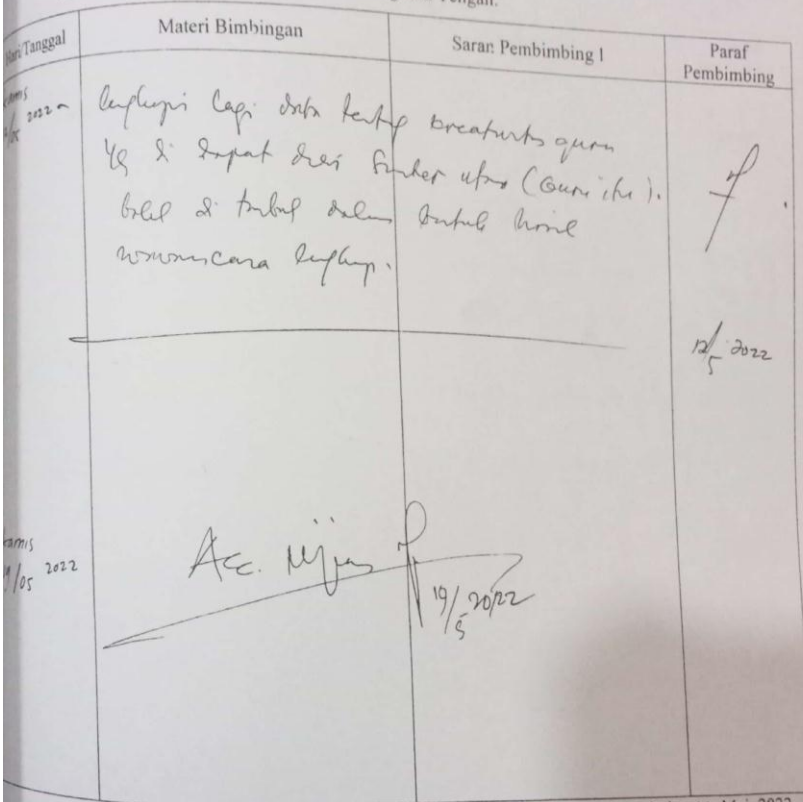 Tengah.
Hari/Tanggal Materi Bimbingan Saran Pembimbing I Paraf Pembimbing
2022 lengkapi lagi data tentang kreativitas guru
yg di dapat dari sumber utama (Guru itu).
di dalam bentuk hasil
wawancara lengkap.
12/5 2022
amis
9/05 2022
Acc. Ujian
19/5 2022